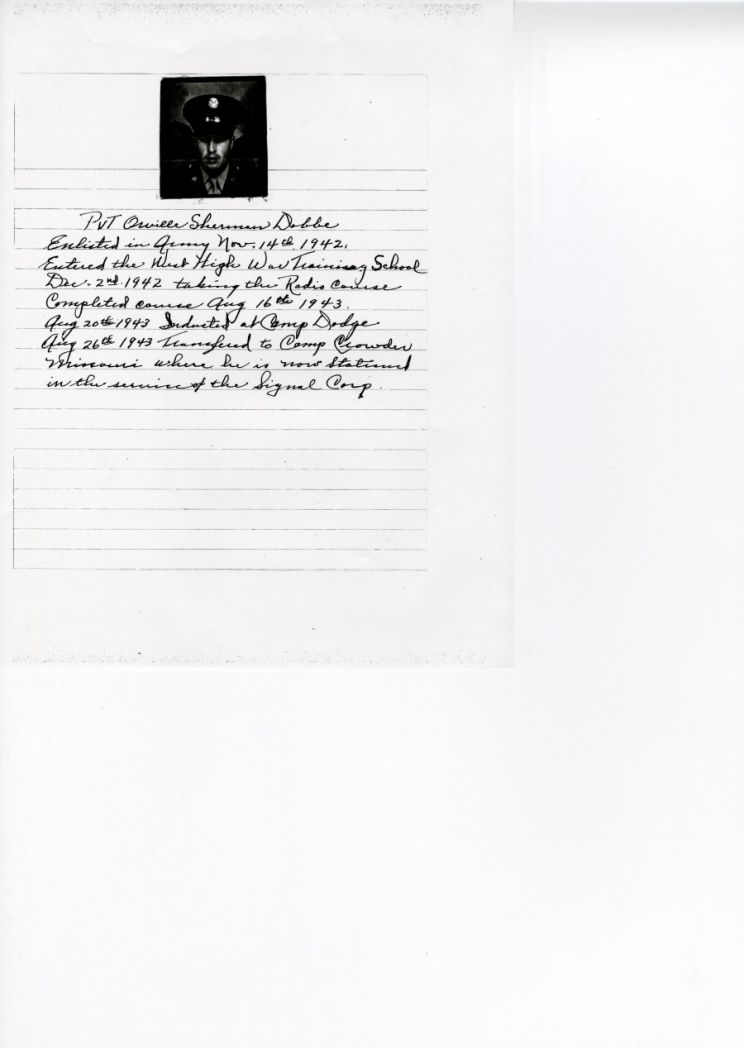 Pvt Orville Sherman Dobbe
Enlisted in Army Nov. 14th 1942.
Entered the West High War Training School
Dec. 2nd 1942 taking the Radio course
Completed course Aug 16th 1943.
Aug 20th 1943 Inducted at Camp Dodge
Aug 26th 1943 Transfered to Camp Crowder
Missouri where he is now Stationed
in the service of the Signal Corp.